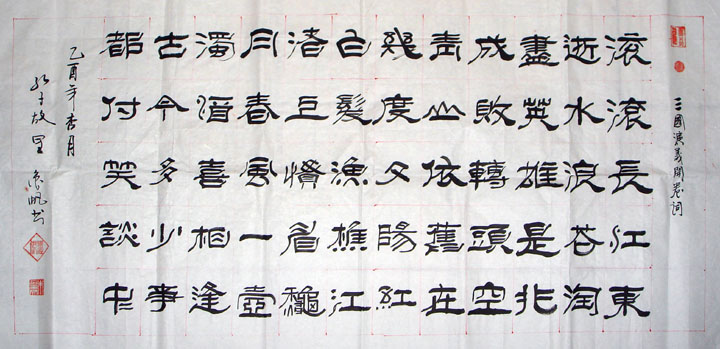 三國演義開卷词
滚滚長江東
逝水浪花淘
盡英雄是非
成敗轉頭空
青山依舊在
幾度夕陽紅
白髮漁樵江
渚上慣看龝
月春風一壺
濁酒喜相逢
古今多少事
都付笑談中
乙酉年杏月
孔子故里 帆书